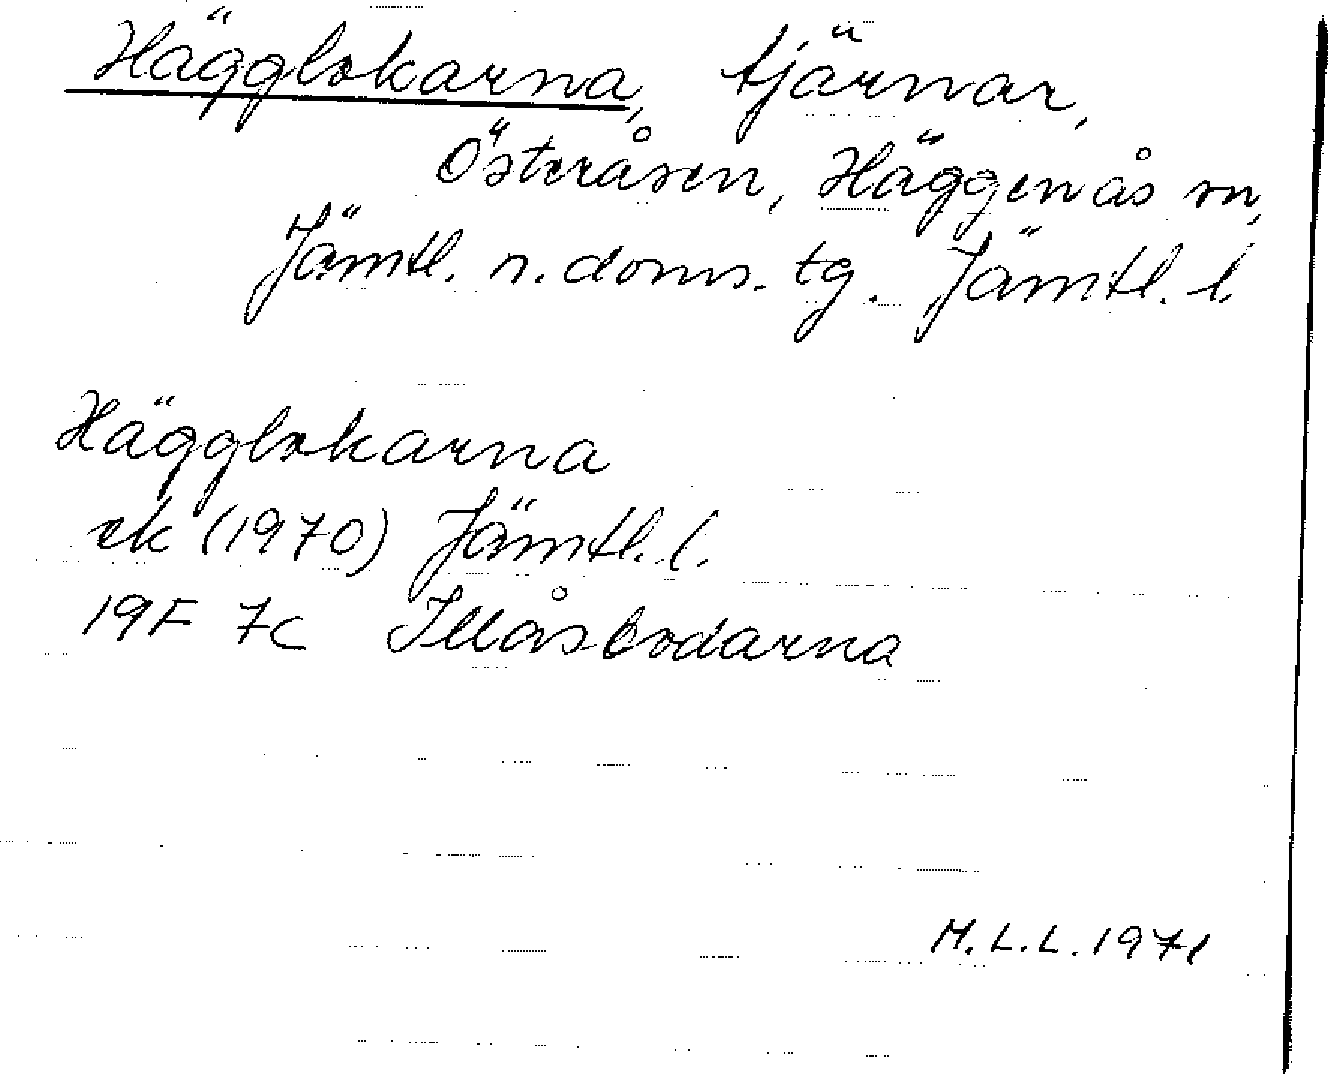 Hägglokarna, tjärnar,
Österåsen, Häggenås sn,
Jämtl. n. doms. tg. Jämtl. l.
Hägglokarna
ek (1970) Jämtl. l.
19F 7c Illåsbodarna
M.L.L. 1971